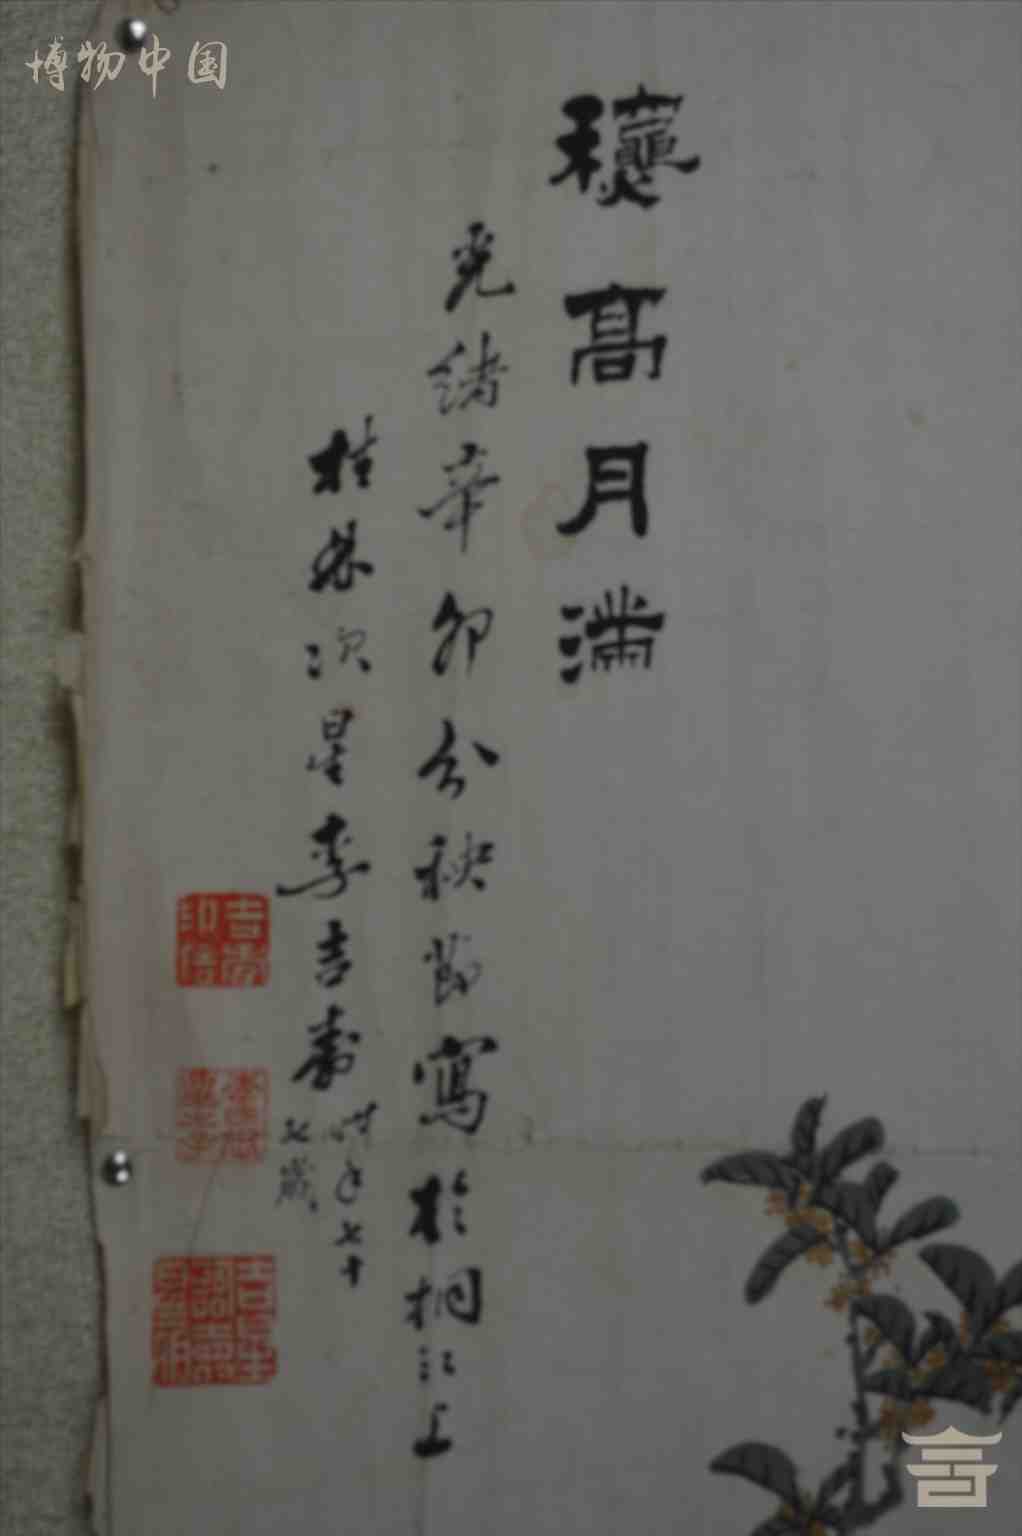 博物中国
龝高月滿
光緒辛卯分秋節寫於桐江上
桂林次星李吉壽
時年七十
七歲
吉壽
印信